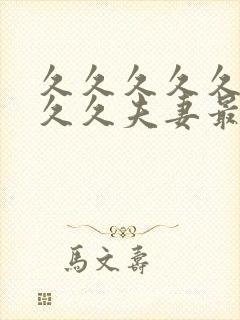 久久久久久
久久夫妻最
馬文壽